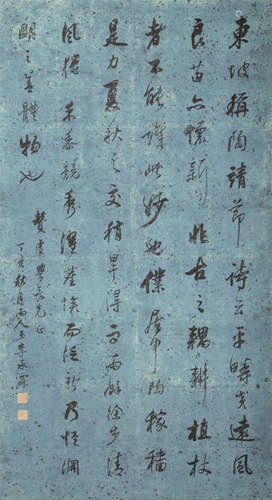 東坡稱陶靖節詩云平疇交遠風
良苗亦懷新非古之耦耕植杖
者不能識此妙也僕居中陶稼穡
是力夏秋之交稍旱得雨雨餘徐步清
風獵獵禾黍競秀濯塵埃而泛新乃悟淵
明之善體物也
丁亥秋月